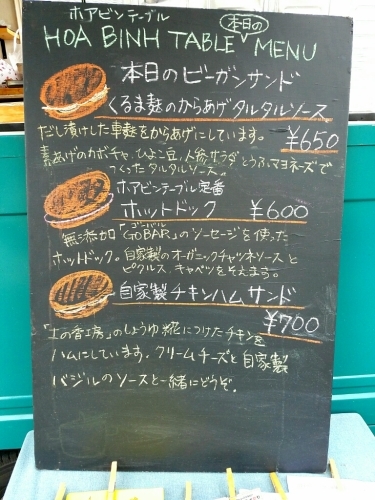 ホアビンテーブル
HOA BINH TABLE 本日の MENU
本日のビーガンサンド
くるま麩のからあげタルタルソース
¥650
だし漬けした車麩をからあげにしています。
素あげのカボチャ、ひよこ豆、人参サラダ とうふマヨネーズで
つくったタルタルソース。
ホアビンテーブル定番
ホットドック ¥600
ゴーバル
無添加「GOBAR」のソーセージを使った
ホットドック。自家製のオーガニックチャツネソースと
ピクルス、キャベツをそえます。
自家製チキンハムサンド
¥700
「土の香工房」のしょうゆ糀につけたチキンを
ハムにしています。クリームチーズと自家製
バジルのソースと一緒にどうぞ。